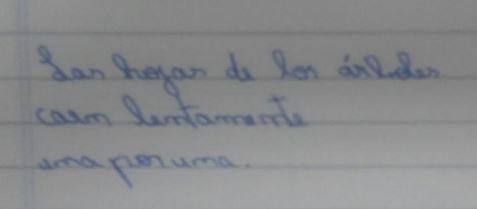 Las hojas de los árboles
caen lentamente
una por una.